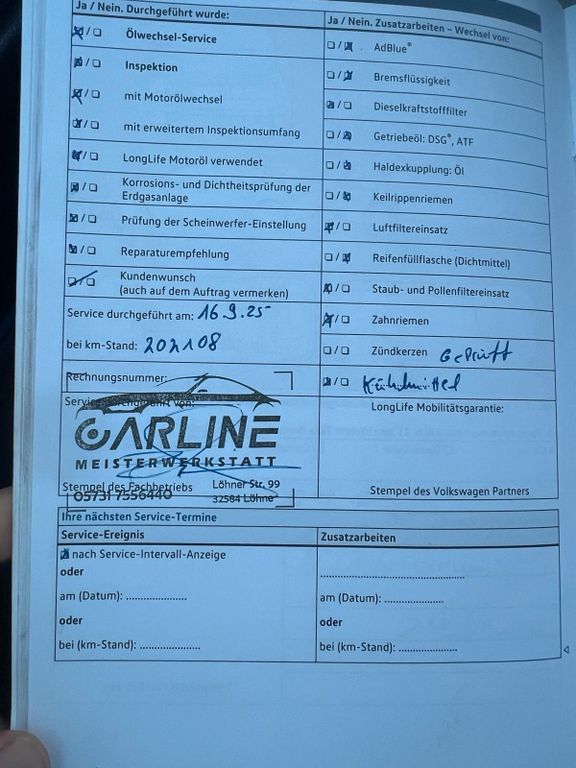 Ja / Nein. Durchgeführt wurde:
Ölwechsel-Service
Inspektion
mit Motorölwechsel
mit erweitertem Inspektionsumfang
LongLife Motoröl verwendet
Korrosions- und Dichtheitsprüfung der
Erdgasanlage
Prüfung der Scheinwerfer-Einstellung
Reparaturempfehlung
Kundenwunsch
(auch auf dem Auftrag vermerken)
Service durchgeführt am: 16.9.25
bei km-Stand: 202108
Rechnungsnummer:
Service durchgeführt von:
CARLINE
MEISTERWERKSTATT
Stempel des Fachbetriebs
Löhner Str. 99
05731 7556440
32584 Löhne
Ja / Nein. Zusatzarbeiten – Wechsel von:
AdBlue®
Bremsflüssigkeit
Dieselkraftstofffilter
Getriebeöl: DSG®, ATF
Haldexkupplung: Öl
Keilrippenriemen
Luftfiltereinsatz
Reifenfüllflasche (Dichtmittel)
Staub- und Pollenfiltereinsatz
Zahnriemen
Zündkerzen Geprüft
Kühlmittel
LongLife Mobilitätsgarantie:
Stempel des Volkswagen Partners
Ihre nächsten Service-Termine
Service-Ereignis
nach Service-Intervall-Anzeige
oder
am (Datum): .....................
oder
bei (km-Stand): .....................
Zusatzarbeiten
..................................................
am (Datum): .....................
oder
bei (km-Stand): .....................